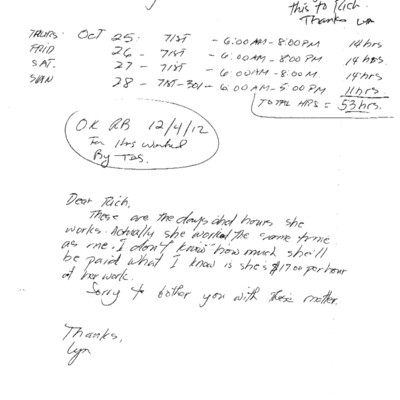 this to Rich.
Thanks Lyn
THURS OCT 25 - 71ST - 6:00 AM - 8:00 PM 14 hrs
FRID 26 - 71ST - 6:00 AM - 8:00 PM 14 hrs.
SAT. 27 - 71ST - 6:00 AM - 8:00 M 14 hrs
SUN 28 - 71ST - 301 - 6:00 AM - 5:00 PM 11 hrs.
TOTAL HRS = 53 hrs.
OK RB 12/4/12
For Hrs Worked
By TDS.
Dear Rich,
These are the days and hours she
works. Actually she worked the same time
as me. I don't know how much she'll
be paid what I know is she's $17.00 per hour
at her work.
Sorry to bother you with these matter.
Thanks,
Lyn